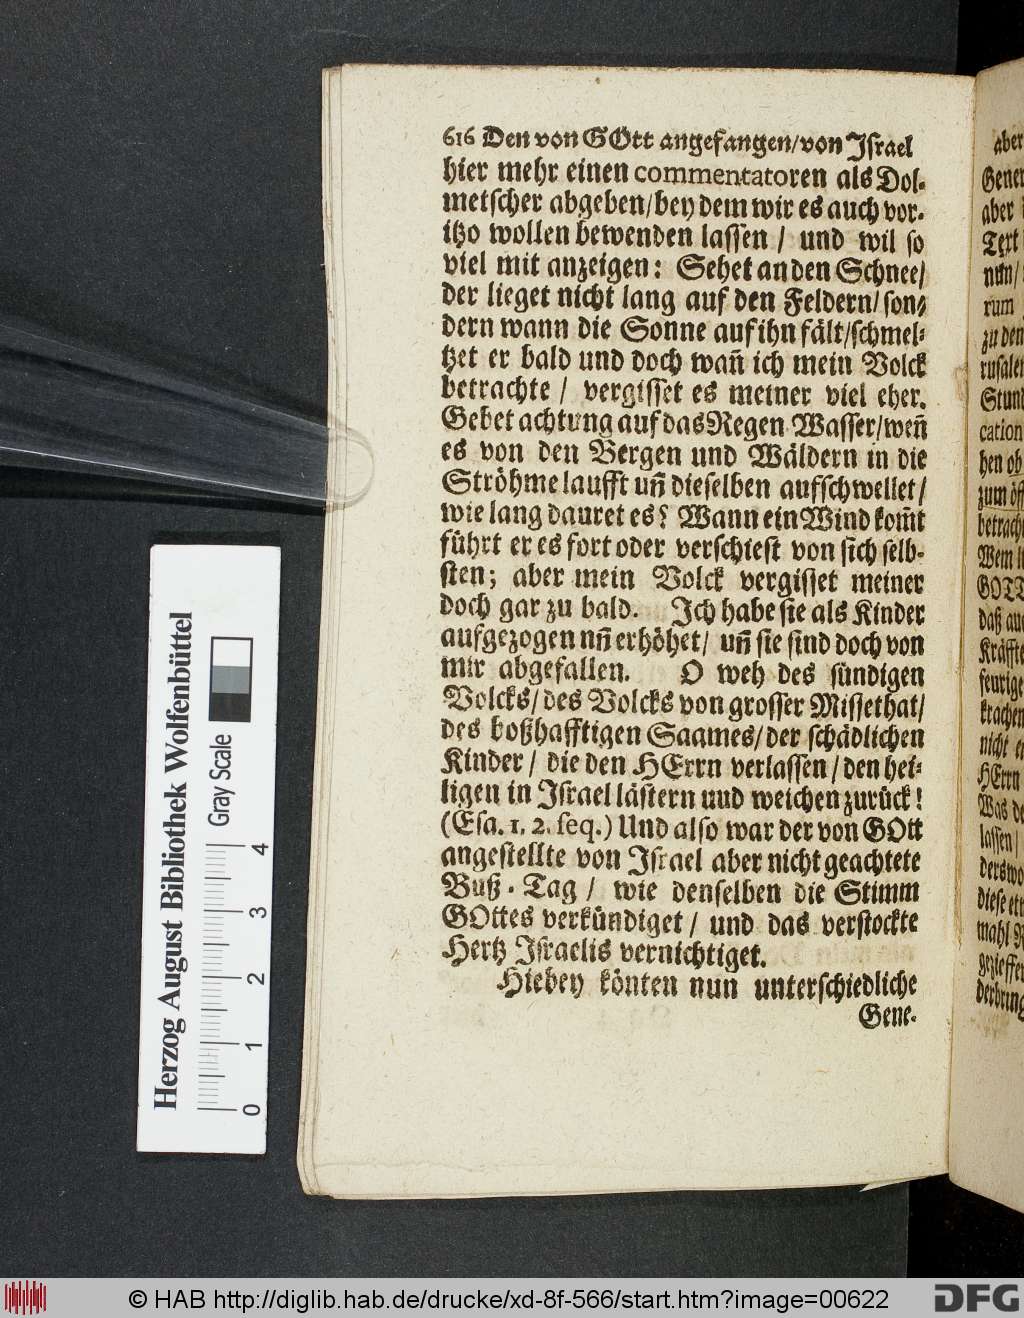 616 Den von GOtt angefangen/von Israel
hier mehr einen commentatoren als Dol-
metscher abgeben/bey dem wir es auch vor-
itzo wollen bewenden lassen / und wil so
viel mit anzeigen: Sehet an den Schnee/
der lieget nicht lang auf den Feldern/ son-
dern wann die Sonne auf ihn fält/schmel-
tzet er bald und doch wañ ich mein Volck
betrachte / vergisset es meiner viel eher.
Gebet achtung auf das Regen Wasser/weñ
es von den Bergen und Wäldern in die
Ströhme laufft uñ dieselben aufschwellet/
wie lang dauret es? Wann ein Wind kom̃t
führt er es fort oder verschiest von sich selb-
sten; aber mein Volck vergisset meiner
doch gar zu bald. Ich habe sie als Kinder
aufgezogen nñ erhöhet/ uñ sie sind doch von
mir abgefallen. O weh des sündigen
Volcks/ des Volcks von grosser Missethat/
des boßhafftigen Saames/der schädlichen
Kinder / die den HErrn verlassen / den hei-
ligen in Israel lästern und weichen zurück!
(Esa. 1, 2. seq.) Und also war der von GOtt
angestellte von Israel aber nicht geachtete
Buß-Tag / wie denselben die Stimm
GOttes verkündiget / und das verstockte
Hertz Israelis vernichtiget.
Hiebey könten nun unterschiedliche
Gene-
aber
Gener
aber
Text
nun/
rum
zu den
rusalem
Stund
cation
hen ob
zum öf
betrach
Wem
GOTT
daß auc
Kräffte
feurige
krachen
nicht e
HErrn
Was de
lassen /
derswo
diese et
mahl
gezieffer
derbring
Herzog August Bibliothek Wolfenbüttel
Gray Scale
0 1 2 3 4
© HAB http://diglib.hab.de/drucke/xd-8f-566/start.htm?image=00622
DFG